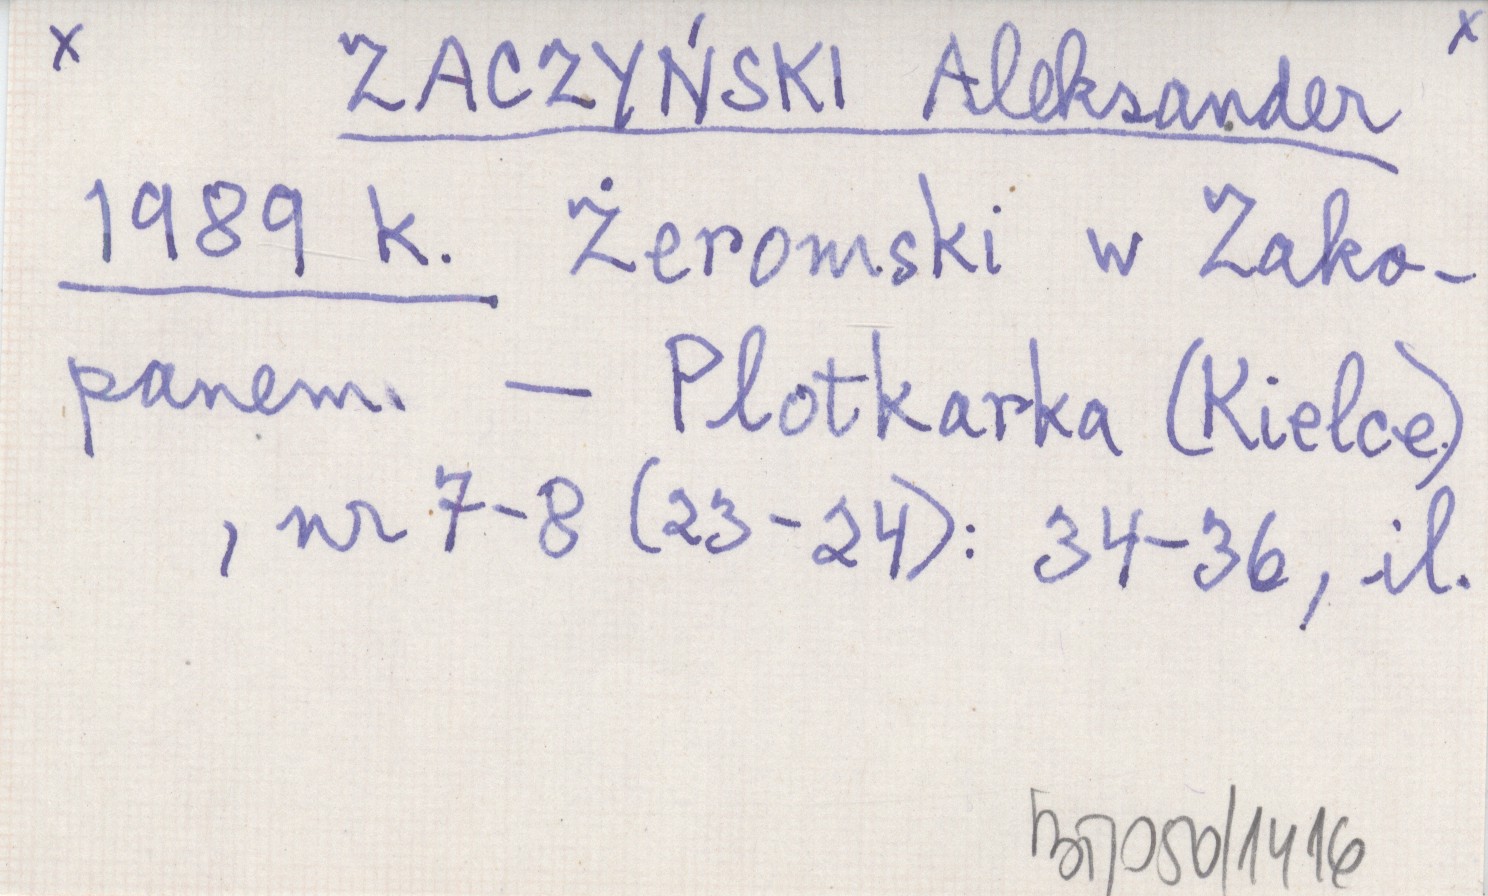 x ZACZYŃSKI Aleksander x
1989 k. Żeromski w Zako-
panem. — Plotkarka (Kielce)
, nr 7-8 (23-24): 34-36, il.
050/1416